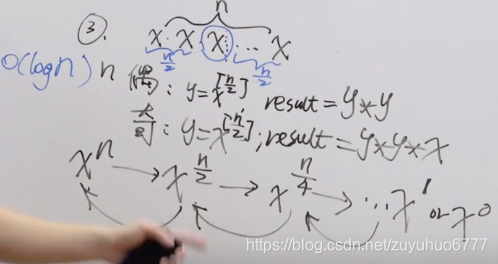 n
③. x x x ... x
n/2 n/2
O(logn) n
偶: y=x^[n/2] result=y*y
奇: y=x^[n/2]; result=y*y*x
x^n → x^(n/2) → x^(n/4) → ...x^1 or x^0
https://blog.csdn.net/zuyuhuo6777